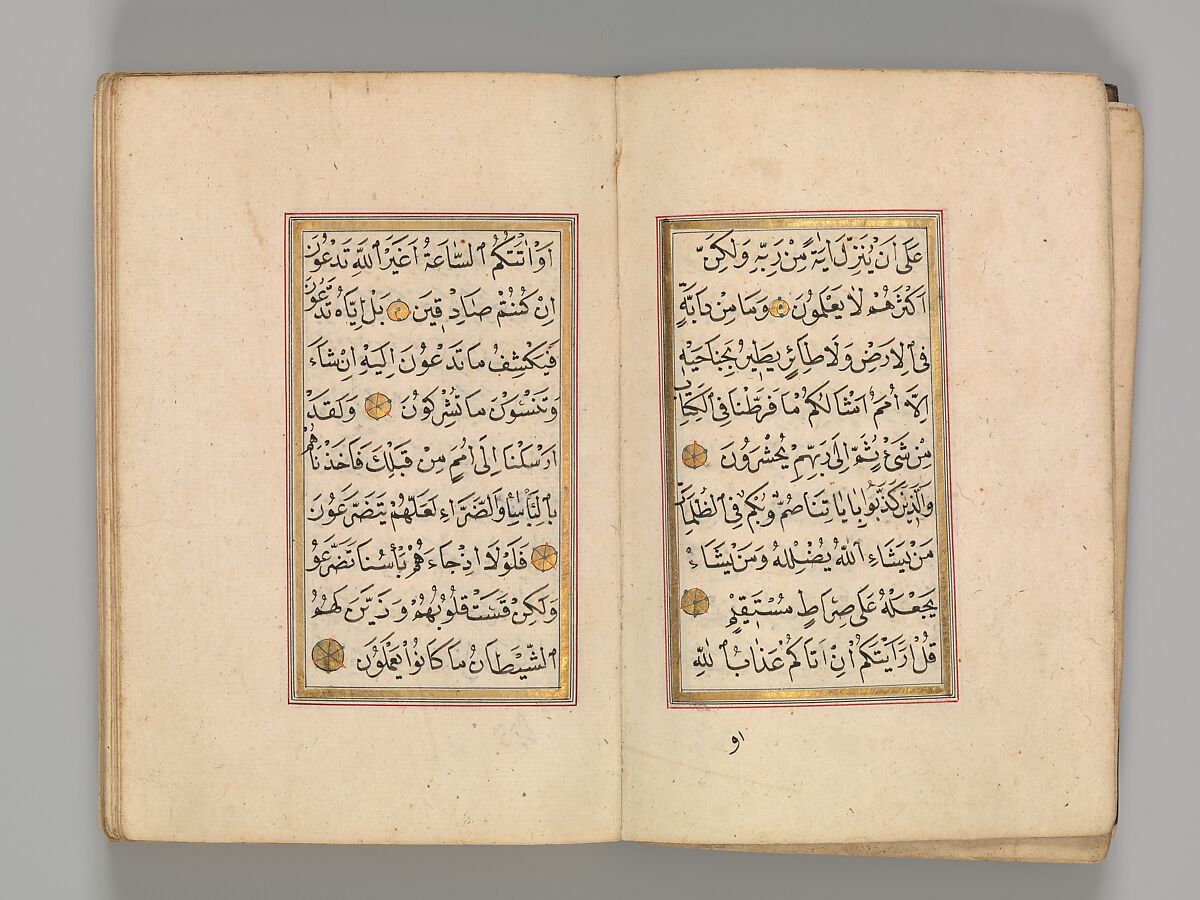 عَلٰى اَنْ يُنَزِّلَ اٰيَةً مِنْ رَبِّهِ وَلٰكِنَّ
اَكْثَرَهُمْ لَا يَعْلَمُونَ وَمَا مِنْ دَابَّةٍ
فِى الْاَرْضِ وَلَا طَائِرٍ يَطِيرُ بِجَنَاحَيْهِ
اِلَّا اُمَمٌ اَمْثَالُكُمْ مَا فَرَّطْنَا فِى الْكِتَابِ
مِنْ شَىْءٍ ثُمَّ اِلٰى رَبِّهِمْ يُحْشَرُونَ
وَالَّذِينَ كَذَّبُوا بِاٰيَاتِنَا صُمٌّ وَبُكْمٌ فِى الظُّلُمَاتِ
مَنْ يَشَاءِ اللّٰهُ يُضْلِلْهُ وَمَنْ يَشَاءْ
يَجْعَلْهُ عَلٰى صِرَاطٍ مُسْتَقِيمٍ
قُلْ اَرَاَيْتَكُمْ اِنْ اَتَاكُمْ عَذَابُ اللّٰهِ
او
اَوْ اَتَتْكُمُ السَّاعَةُ اَغَيْرَ اللّٰهِ تَدْعُونَ
اِنْ كُنْتُمْ صَادِقِينَ بَلْ اِيَّاهُ تَدْعُونَ
فَيَكْشِفُ مَا تَدْعُونَ اِلَيْهِ اِنْ شَاءَ
وَتَنْسَوْنَ مَا تُشْرِكُونَ وَلَقَدْ
اَرْسَلْنَا اِلٰى اُمَمٍ مِنْ قَبْلِكَ فَاَخَذْنَاهُمْ
بِالْبَأْسَاءِ وَالضَّرَّاءِ لَعَلَّهُمْ يَتَضَرَّعُونَ
فَلَوْلَا اِذْ جَاءَهُمْ بَأْسُنَا تَضَرَّعُوا
وَلٰكِنْ قَسَتْ قُلُوبُهُمْ وَزَيَّنَ لَهُمُ
الشَّيْطَانُ مَا كَانُوا يَعْمَلُونَ